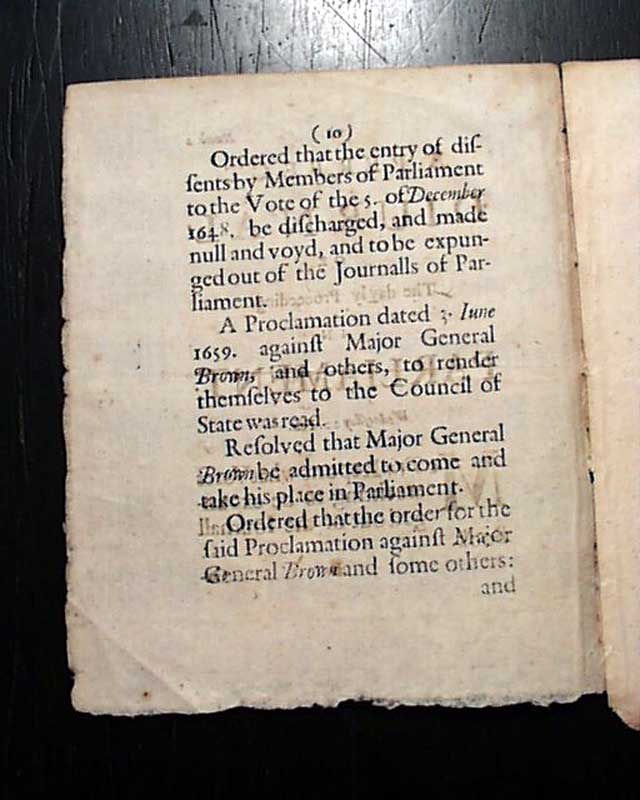 (10)
Ordered that the entry of diſ-
ſents by Members of Parliament
to the Vote of the 5. of December
1648. be diſcharged, and made
null and voyd, and to be expun-
ged out of the Journalls of Par-
liament.
A Proclamation dated 3. Iune
1659. againſt Major General
Brown, and others, to render
themſelves to the Council of
State was read.
Reſolved that Major General
Brown be admitted to come and
take his place in Parliament.
Ordered that the order for the
ſaid Proclamation againſt Major
General Brown and ſome others:
and